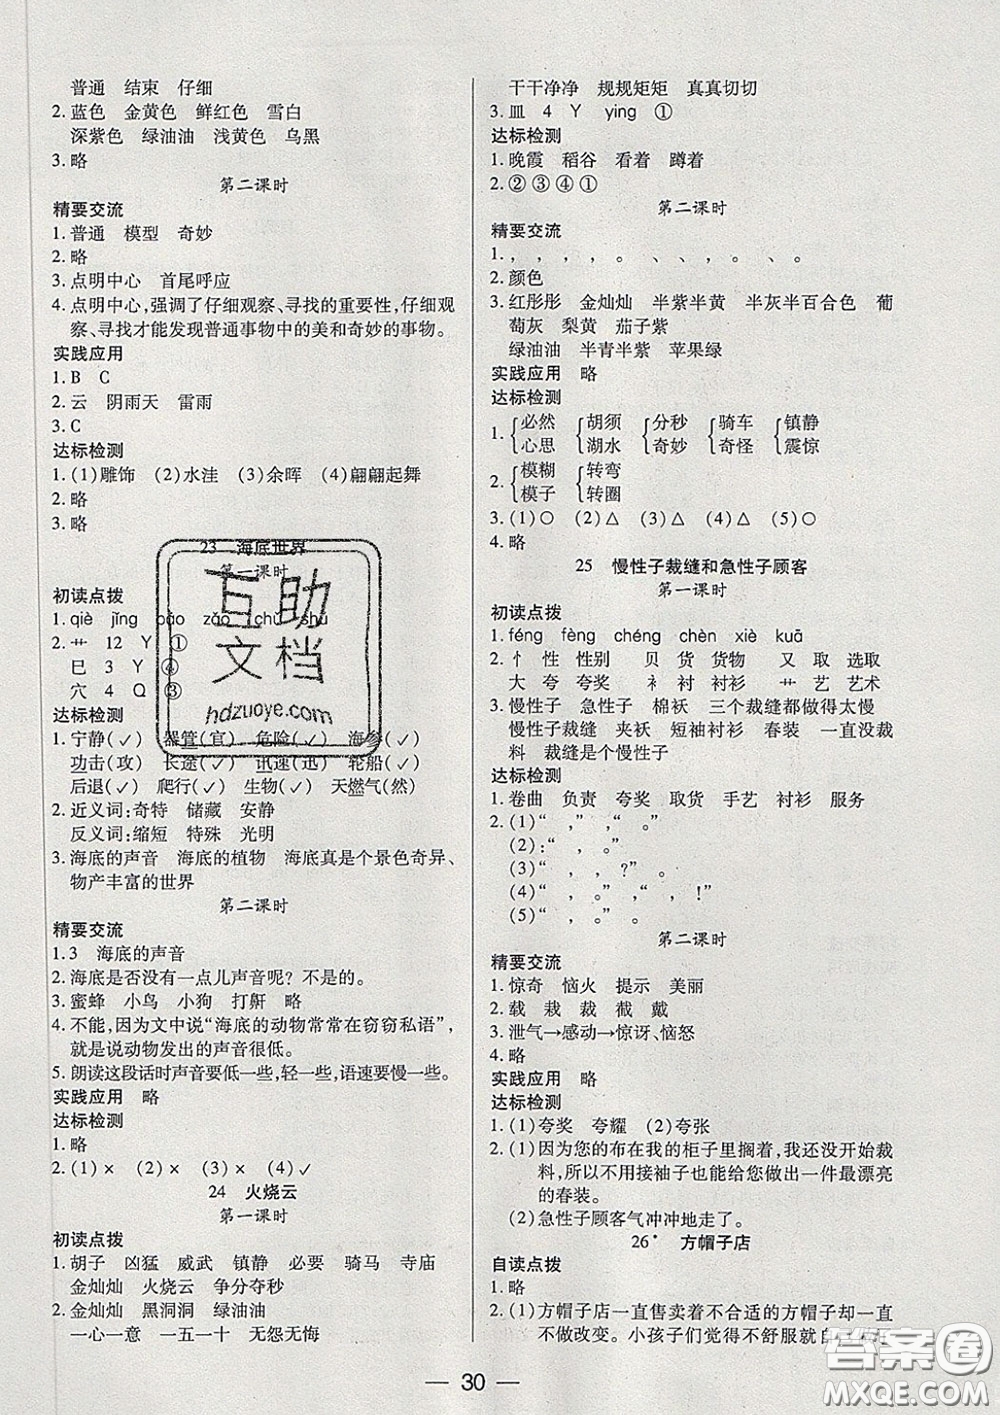 普通　结束　仔细
2. 蓝色　金黄色　鲜红色　雪白
深紫色　绿油油　浅黄色　乌黑
3. 略
第二课时
精要交流
1. 普通　模型　奇妙
2. 略
3. 点明中心　首尾呼应
4. 点明中心,强调了仔细观察、寻找的重要性,仔细观
察、寻找才能发现普通事物中的美和奇妙的事物。
实践应用
1. B　C
2. 云　阴雨天　雷雨
3. C
达标检测
1. (1)雕饰　(2)水洼　(3)余晖　(4)翩翩起舞
2. 略
3. 略
23　海底世界
第一课时
初读点拨
1. qiè　jǐng　bāo　zǎo　chǔ　shǔ
2. 艹　12　Y　①
巳　3　Y　④
穴　4　Q　③
达标检测
1. 宁静(✓)　器管(官)　危险(✓)　海参(✓)
功击(攻)　长途(✓)　讯速(迅)　轮船(✓)
后退(✓)　爬行(✓)　生物(✓)　天燃气(然)
2. 近义词:奇特　储藏　安静
反义词:缩短　特殊　光明
3. 海底的声音　海底的植物　海底真是个景色奇异、
物产丰富的世界
第二课时
精要交流
1. 3　海底的声音
2. 海底是否没有一点儿声音呢？不是的。
3. 蜜蜂　小鸟　小狗　打鼾　略
4. 不能,因为文中说“海底的动物常常在窃窃私语”,
就是说动物发出的声音很低。
5. 朗读这段话时声音要低一些,轻一些,语速要慢一些。
实践应用　略
达标检测
1. 略
2. (1)×　(2)×　(3)×　(4)✓
24　火烧云
第一课时
初读点拨
1. 胡子　凶猛　威武　镇静　必要　骑马　寺庙
金灿灿　火烧云　争分夺秒
2. 金灿灿　黑洞洞　绿油油
一心一意　一五一十　无怨无悔
干干净净　规规矩矩　真真切切
3. 皿　4　Y　yíng　①
达标检测
1. 晚霞　稻谷　看着　蹲着
2. ②③④①
第二课时
精要交流
1. ,　,　,　。　、　、　,　。　、　。
2. 颜色
3. 红彤彤　金灿灿　半紫半黄　半灰半百合色　葡
萄灰　梨黄　茄子紫
绿油油　半青半紫　苹果绿
实践应用　略
达标检测
1. {必然　{胡须　{分秒　{骑车　{镇静
心思　湖水　奇妙　奇怪　震惊
2. {模糊　{转弯
模子　转圈
3. (1)○　(2)△　(3)△　(4)△　(5)○
4. 略
25　慢性子裁缝和急性子顾客
第一课时
初读点拨
1. féng　fèng　chéng　chèn　xiè　kuā
2. 忄　性　性别　贝　货　货物　又　取　选取
大　夸　夸奖　衤　衬　衬衫　艹　艺　艺术
3. 慢性子　急性子　棉袄　三个裁缝都做得太慢
慢性子裁缝　夹袄　短袖衬衫　春装　一直没裁
料　裁缝是个慢性子
达标检测
1. 卷曲　负责　夸奖　取货　手艺　衬衫　服务
2. (1)“　,　”,　“　。”
(2):“　,　,　。”
(3)“　,　,　。”
(4)“　,　”,　“　,　!”
(5)“　,　。”
第二课时
精要交流
1. 惊奇　恼火　提示　美丽
2. 载　栽　裁　截　戴
3. 泄气→感动→惊讶、恼怒
4. 略
实践应用　略
达标检测
1. (1)夸奖　(2)夸耀　(3)夸张
2. (1)因为您的布在我的柜子里搁着,我还没开始裁
料,所以不用接袖子也能给您做出一件最漂亮
的春装。
(2)急性子顾客气冲冲地走了。
26*　方帽子店
自读点拨
1. 略
2. (1)方帽子店一直售卖着不合适的方帽子却一直
不做改变。小孩子们觉得不舒服就自
30
互助
文档
hdzuoye.com
答案圈
MXQE.COM